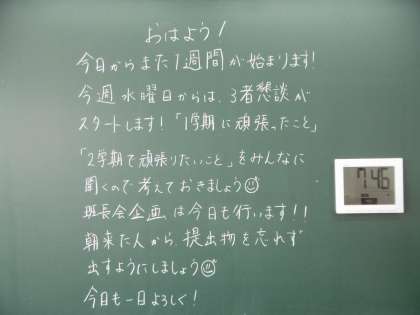 おはよう！
今日からまた1週間が始まります！
今週水曜日からは、3者懇談が
スタートします！「1学期に頑張ったこと」
「2学期で頑張りたいこと」をみんなに
聞くので考えておきましょう☺
班長会企画は今日も行います！！
朝来た人から、提出物を忘れず
出すようにしましょう☺
今日も一日よろしく！
7:46